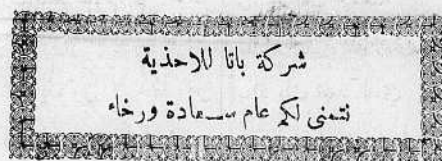 شركة باتا للاحذية
نتمنى لكم عام سعادة ورخاء